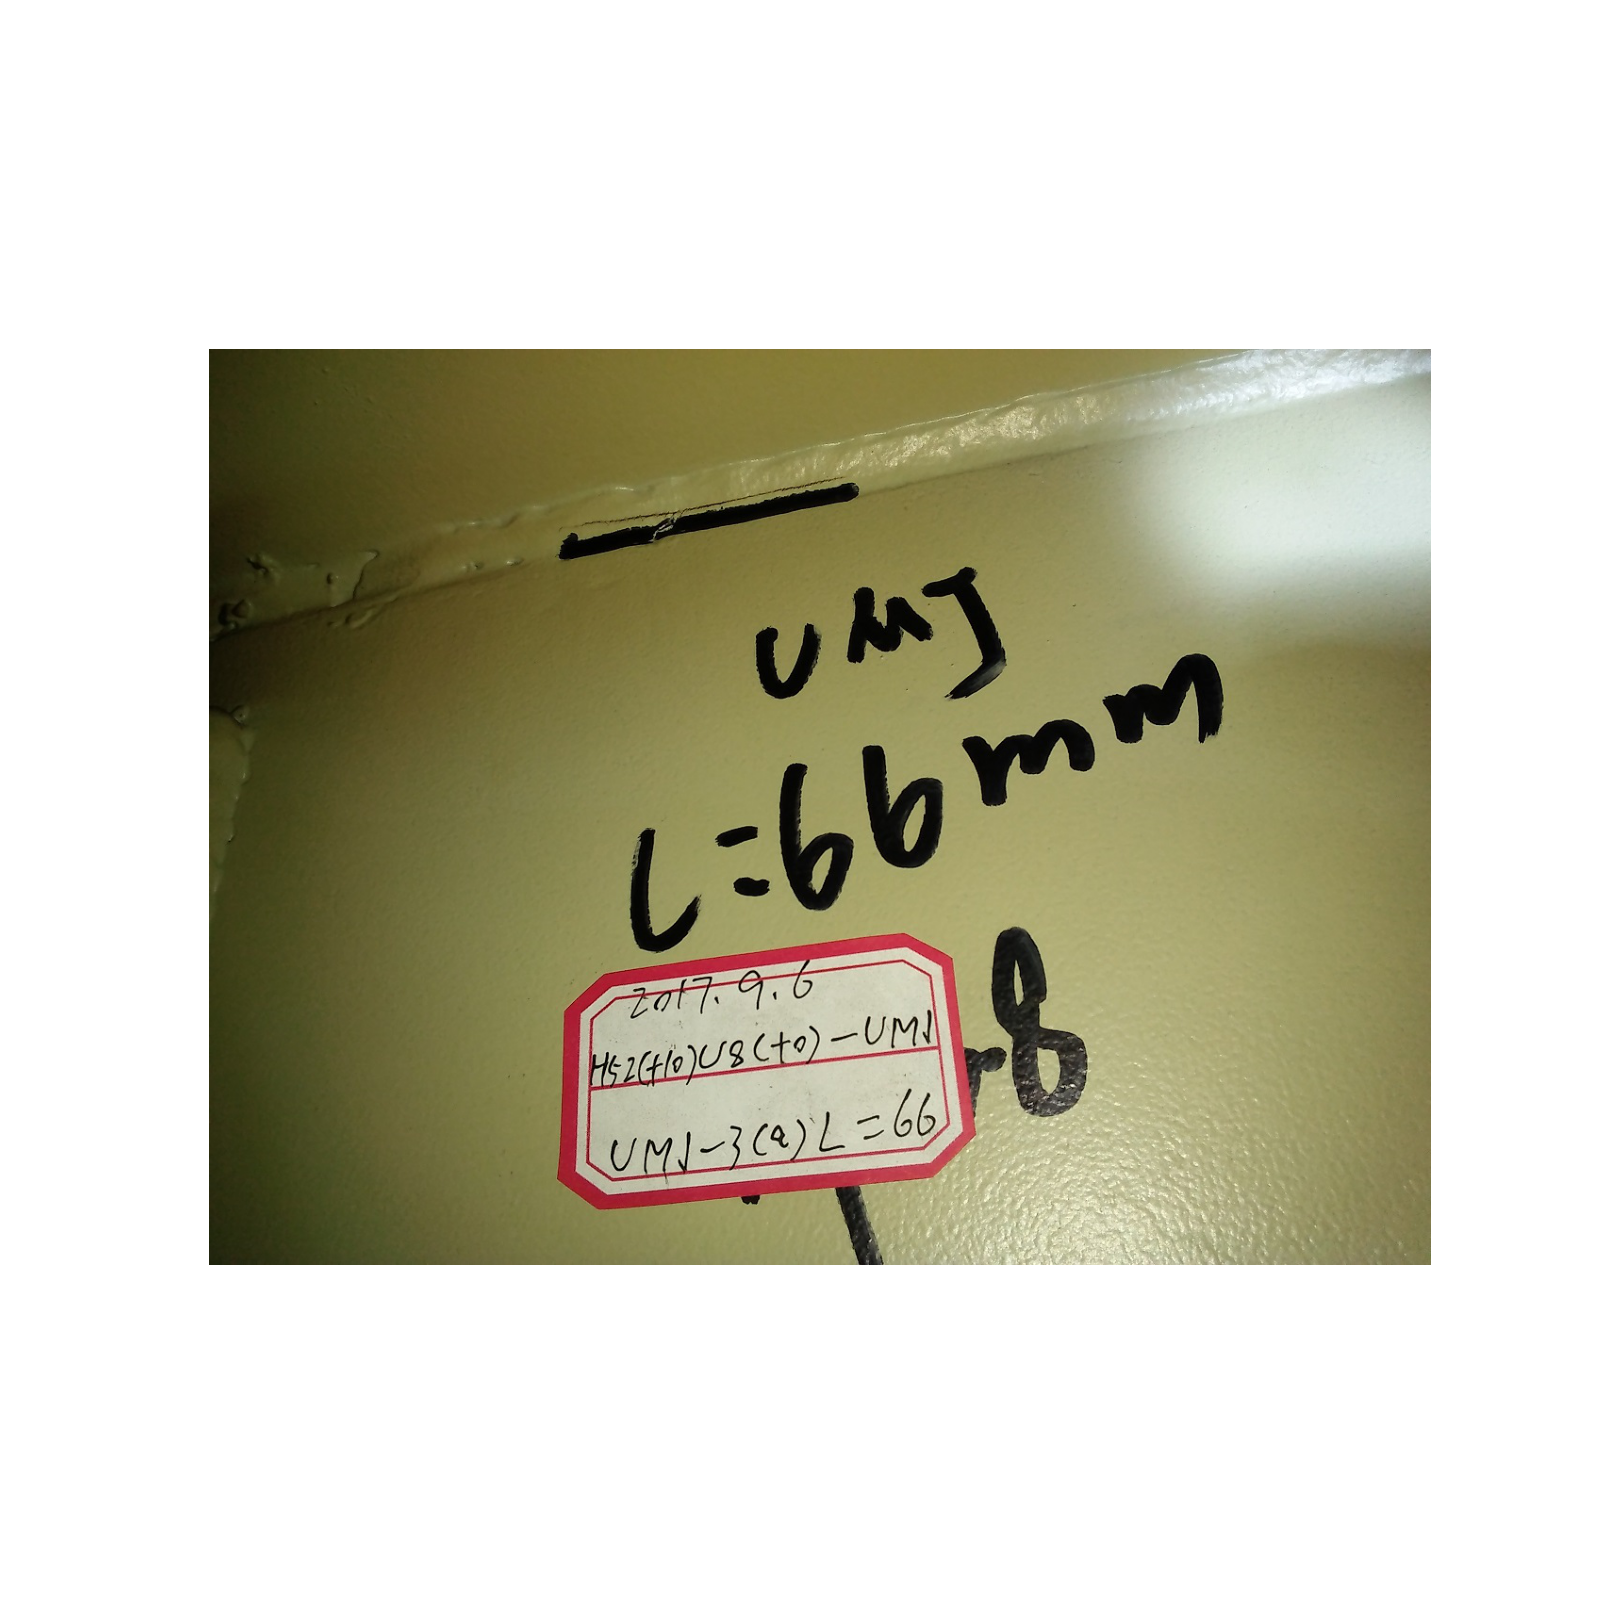 UMJ
L=66mm
-8
2017.9.6
H52(+10)U8(+0)-UMJ
UMJ-3(a)L=66